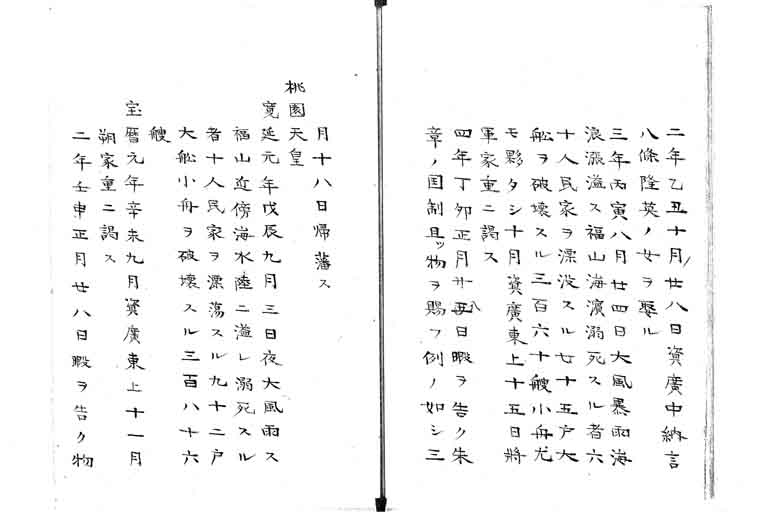 二年乙丑十月廿八日資廣中納言
八條隆英ノ女ヲ娶ル
三年丙寅八月廿四日大風暴雨海
浪漲溢ス福山海濱溺死スル者六
十人民家ヲ漂没スル七十五戸大
船ヲ破壊スル三百六十艘小舟尤
モ夥タシ十月資廣東上十五日將
軍家重ニ謁ス
四年丁卯正月廿八日暇ヲ告ク朱
章ノ国制具ッ物ヲ賜フ例ノ如シ三
月十八日帰藩ス
桃園天皇
寛延元年戊辰九月三日夜大風雨ス
福山近傍海水陸ニ溢レ溺死スル
者十人民家ヲ漂蕩スル九十二戸
大船小舟ヲ破壊スル三百八十六
艘
宝暦元年辛未九月資廣東上十一月
朔家重ニ謁ス
二年壬申正月廿八日暇ヲ告ク物